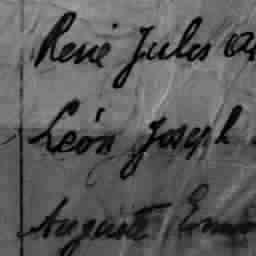 René Jules
Léon Joseph
Auguste